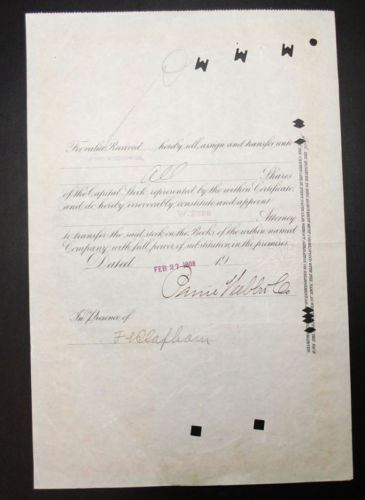 For value Received hereby sell, assign and transfer unto
All Shares
of the Capital Stock represented by the within Certificate
and do hereby irrevocably constitute and appoint
W. Pype
Attorney
to transfer the said stock on the Books of the within named
Company with full power of substitution in the premises.
Dated FEB 27 1908 19
Paine Webber Co
In Presence of
F E Clapham